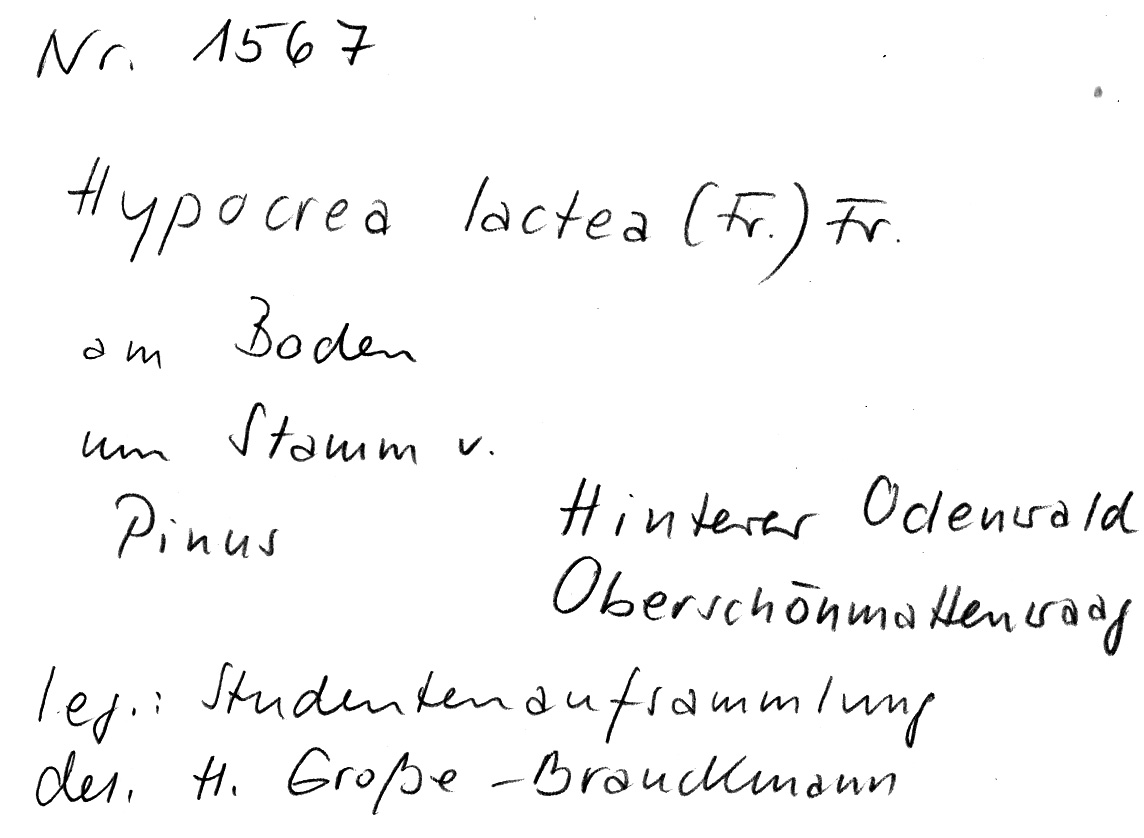 Nr. 1567
Hypocrea lactea (Fr.) Fr.
am Boden
um Stamm v.
Pinus
Hinterer Odenwald
Oberschönmattenwaag
leg.: Studentenaufsammlung
det. H. Große-Brauckmann